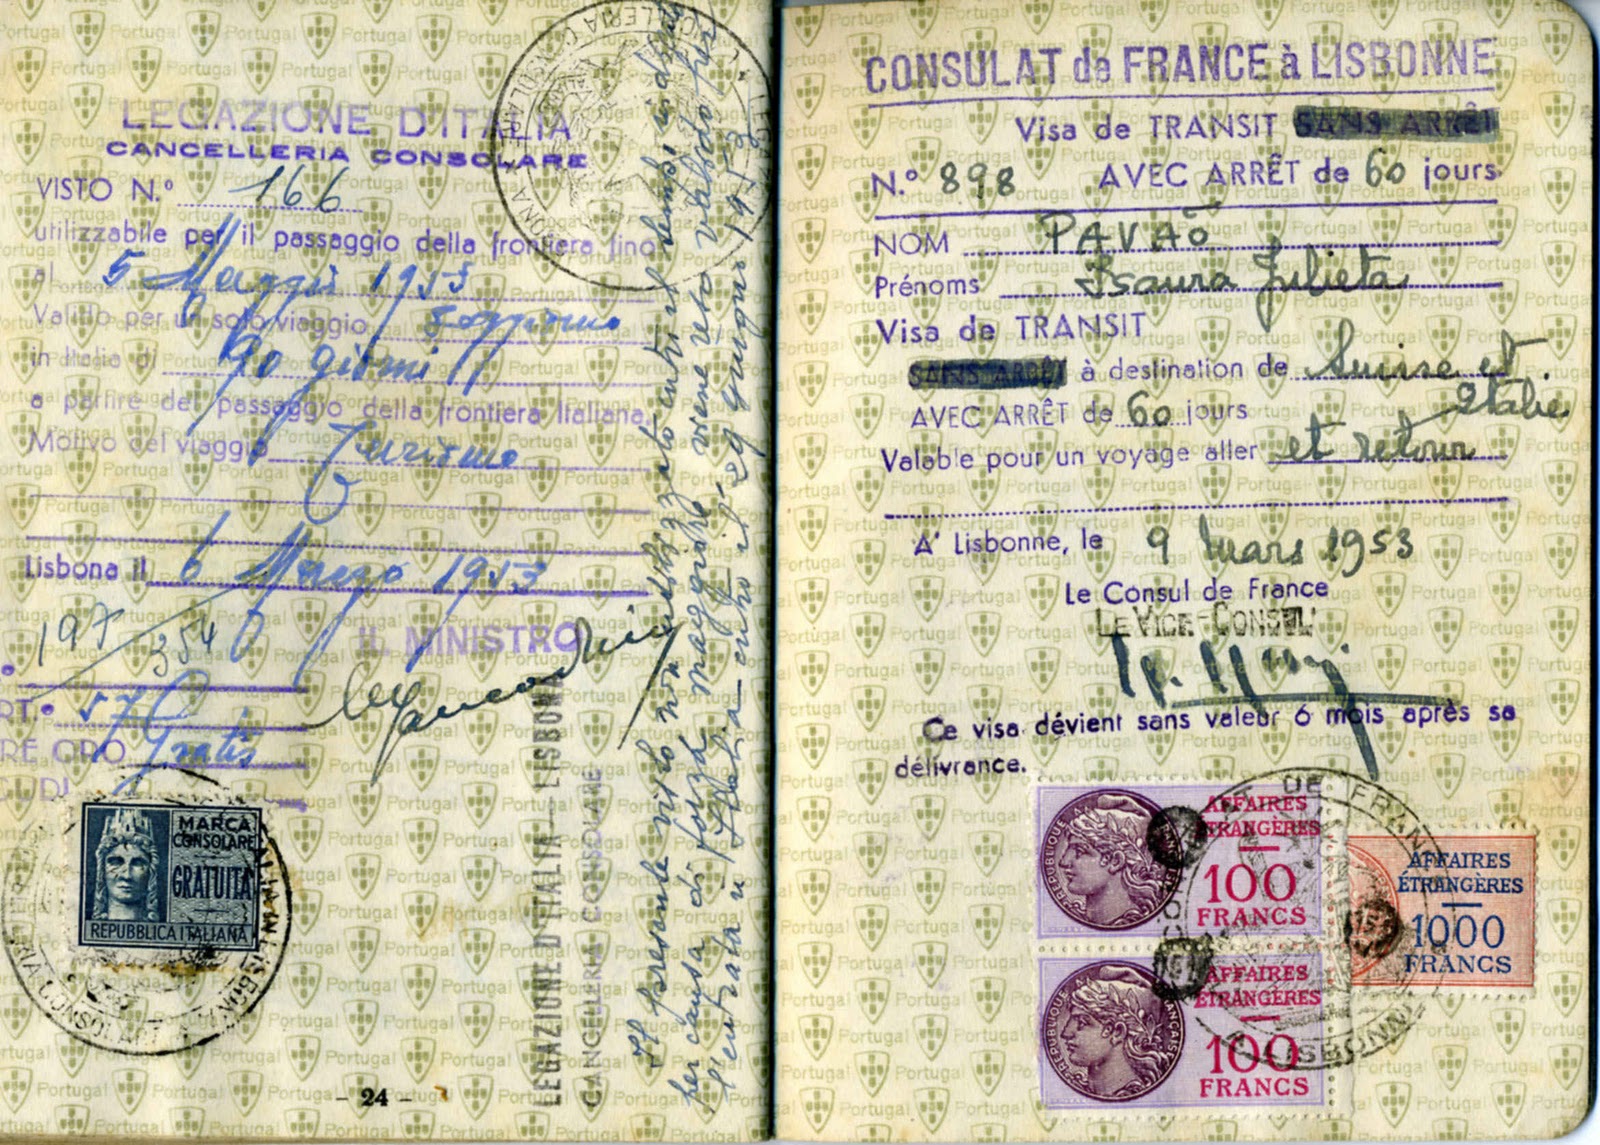 LEGAZIONE D'ITALIA
CANCELLERIA CONSOLARE
VISTO N.° 166
utilizzabile per il passaggio della frontiera fino
al 5 Maggio 1953
Valido per un solo viaggio soggiorno
in Italia di 90 giorni
a partire del passaggio della frontiera Italiana.
Motivo del viaggio Turismo
Lisbona il 6 Marzo 1953
197
354
IL MINISTRO
RT. 57
RE ORO Gratis
CUDI
MARCA
CONSOLARE
GRATUITA
REPUBBLICA ITALIANA
- 24 -
LEGAZIONE D'ITALIA - LISBONA
CANCELLERIA CONSOLARE
Il presente visto non utilizzato entro il tempo indicato
per causa di forza maggiore viene reso valido per
l'entrata in Italia entro il 29 giugno 1953
CONSULAT de FRANCE à LISBONNE
Visa de TRANSIT SANS ARRÊT
N.° 898 AVEC ARRÊT de 60 jours
NOM PAVÃO
Prénoms Isaura Julieta
Visa de TRANSIT
SANS ARRÊT à destination de Suisse et
Italie
AVEC ARRÊT de 60 jours
Valable pour un voyage aller et retour
A' Lisbonne, le 9 Mars 1953
Le Consul de France
LE VICE-CONSUL
Ce visa dévient sans valeur 6 mois après sa
délivrance.
RÉPUBLIQUE FRANÇAISE
AFFAIRES
ÉTRANGÈRES
100
FRANCS
AFFAIRES
ÉTRANGÈRES
1000
FRANCS
RÉPUBLIQUE FRANÇAISE
AFFAIRES
ÉTRANGÈRES
100
FRANCS